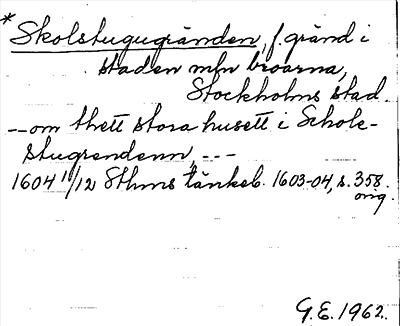 * Skolstugugränden, f. gränd i
staden mfn broarna,
Stockholms stad.
-- om thett stora husett i Schole-
stugrendenn, ---
1604 11/12 Sthms tänkeb. 1603-04, s. 358.
orig.
G.E. 1962.